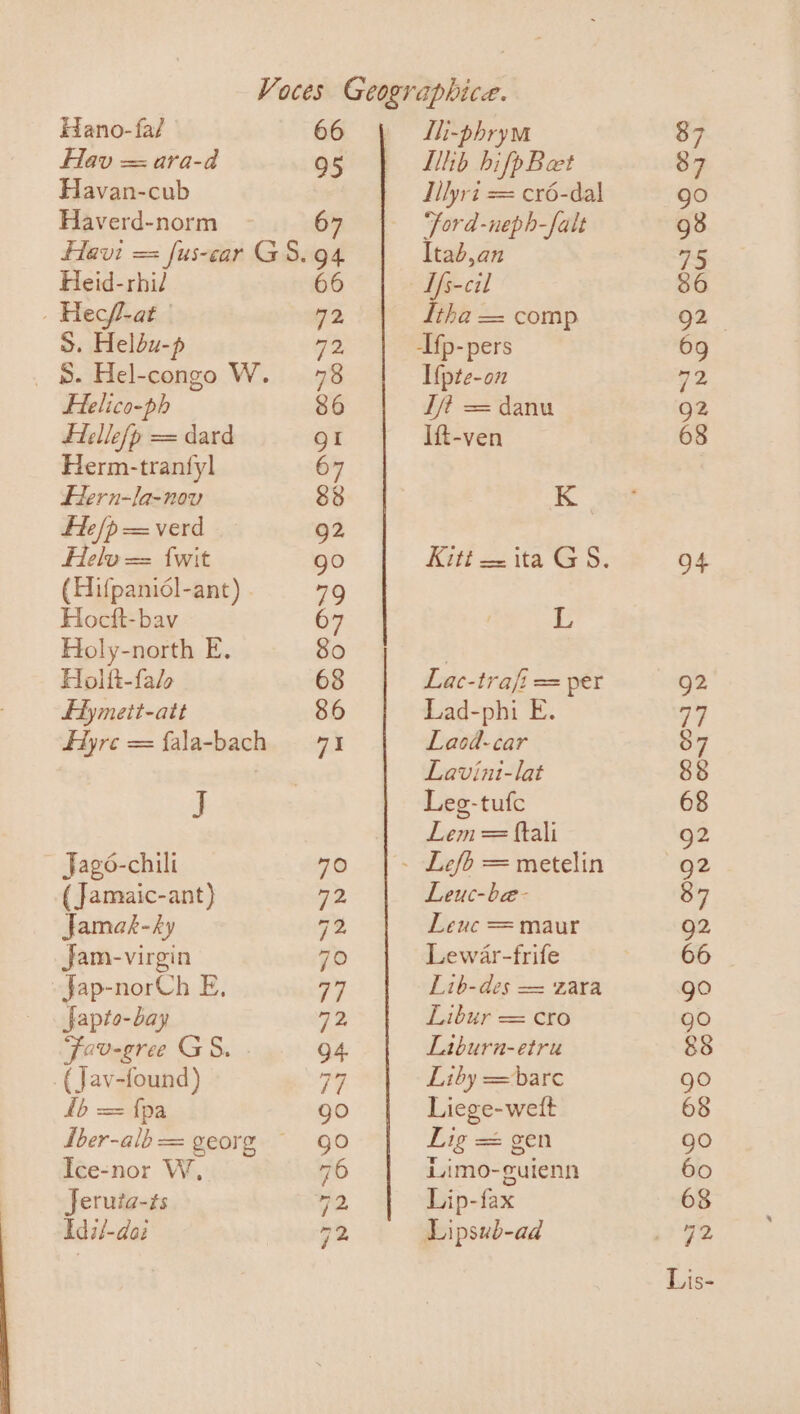 Voces Geographicæ.
Hano-fal 66
Hav = ara-d 95
Havan-cub
Haverd-norm 67
Havi = ſus-car G S. 94
Heid-rhil 66
Hecſl-at 72
S. Helbu-p 72
S. Hel-congo W. 78
Helico-ph 86
Helleſp = dard 91
Herm-tranſyl 67
Hern-la-nov 88
Heſp = verd 92
Helv = ſwit 90
(Hiſpaniól-ant) 79
Hocſt-bav 67
Holy-north E. 80
Holſt-falo 68
Hymett-att 86
Hyrc = ſala-bach 71
J
Jagó-chili 70
(Jamaic-ant) 72
Jamak-ky 72
Jam-virgin 70
Jap-norCh E. 77
Japto-bay 72
Jav-gree G S. 94
(Jav-found) 77
Ib = ſpa 90
Iber-alb = georg 90
Ice-nor W. 76
Jeruta-ts 72
Idil-doi 72
Ili-phryM 87
Illib hiſpBæt 87
Illyri = cró-dal 90
Jord-neph-ſalt 98
Itab,an 75
Iſs-cil 86
Itha = comp 92
Iſp-pers 69
Iſpte-on 72
Iſt = danu 92
Iſt-ven 68
K
Kitt = ita G S. 94
L
Lac-traſi = per 92
Lad-phi E. 77
Laod-car 87
Lavini-lat 88
Leg-tuſc 68
Lem = ſtali 92
Leſb = metelin 92
Leuc-bæ 87
Leuc = maur 92
Lewár-friſe 66
Lib-des = zara 90
Libur = cro 90
Liburn-etru 88
Liby = barc 90
Liege-weſt 68
Lig = gen 90
Limo-guienn 60
Lip-ſax 68
Lipsub-ad 72
Lis-